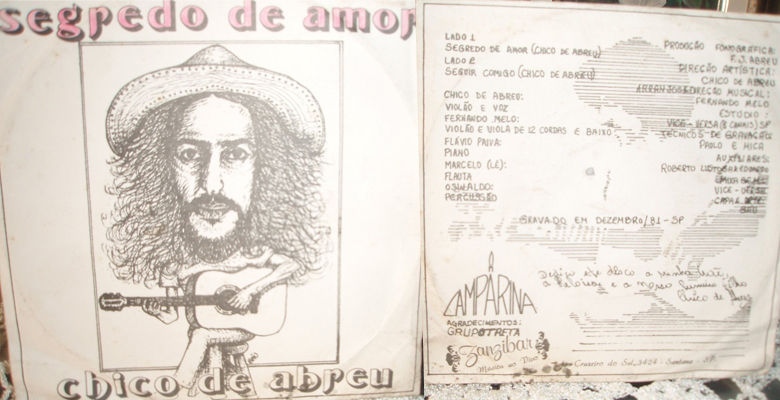 segredo de amor
chico de abreu
LADO 1
SEGREDO DE AMOR (CHICO DE ABREU)
LADO 2
SEGUIR COMIGO (CHICO DE ABREU)
CHICO DE ABREU:
VIOLÃO E VOZ
FERNANDO MELO:
VIOLÃO E VIOLA DE 12 CORDAS E BAIXO
FLÁVIO PAIVA:
PIANO
MARCELO (LÉ):
FLAUTA
OSWALDO:
PERCUSSÃO
PRODUÇÃO FONOGRÁFICA
F.J. ABREU
DIREÇÃO ARTÍSTICA:
CHICO DE ABREU
ARRANJOS E DIREÇÃO MUSICAL:
FERNANDO MELO
ESTÚDIO:
VICE-VERSA (8 CANAIS) SP
TÉCNICOS DE GRAVAÇÃO
PAOLO E MICA
AUXILIARES:
ROBERTO
VICE-VERSA
CAPA:
GRAVADO EM DEZEMBRO/81 - SP
Dedico este disco a minha
a e a nosso
Chico de Abreu
LAMPARINA
AGRADECIMENTOS:
GRUPO TRETA
Zanzibar
Musica ao Vivo
Cruzeiro do Sul, 3424 - Santana - SP.